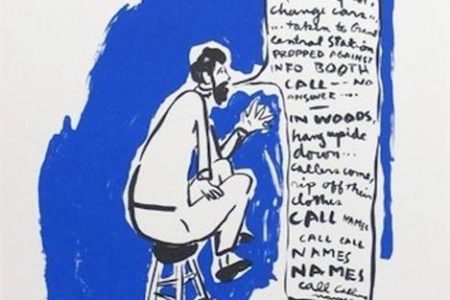 change cars...
... taken to Grand
Central Station
PROPPED AGAINST
INFO BOOTH
CALL -- NO
ANSWER ---
IN WOODS,
hang upside
down...
callers come,
rip off their
clothes
CALL NAMES
CALL CALL
NAMES
NAMES
call